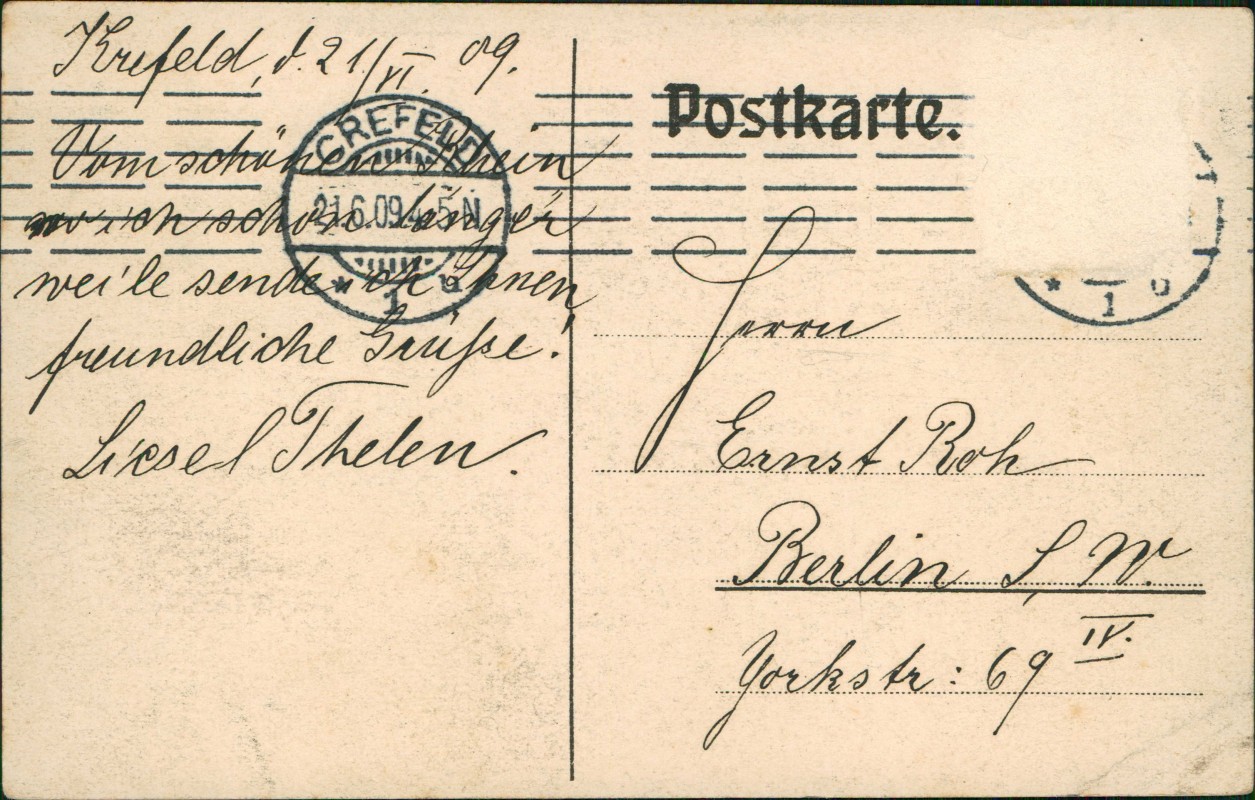 Krefeld, d. 21/VI. 09.
Vom schönen Rhein
wo ich schon länger
weile sende ich Ihnen
freundliche Grüße!
Liesel Thelen.
CREFELD
21.6.09.4-5N
* 1 u
Postkarte.
* 1 u
Herrn
Ernst Roh
Berlin S. W.
Yorkstr: 69 IV.